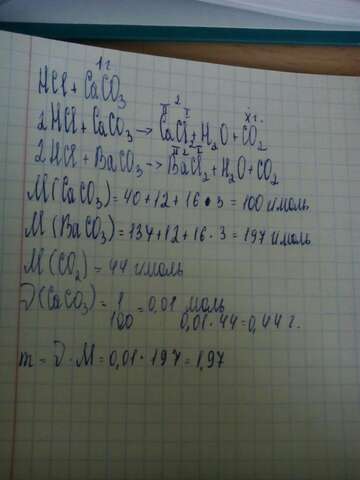 1г.
HCl + CaCO₃
II 2 I xг.
2HCl + CaCO₃ → CaCl₂ + H₂O + CO₂
II 2 I
2HCl + BaCO₃ → BaCl₂ + H₂O + CO₂
M(CaCO₃) = 40+12+16•3 = 100 г/моль
M(BaCO₃) = 137+12+16·3 = 197 г/моль
M(CO₂) = 44 г/моль
ν(CaCO₃) = 1/100 = 0,01 моль
0,01·44 = 0,44 г.
m = ν·M = 0,01·197 = 1,97